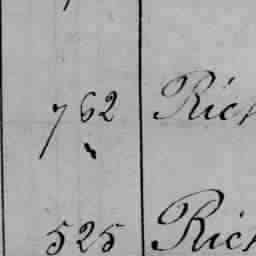 762 Rich
525 Rich